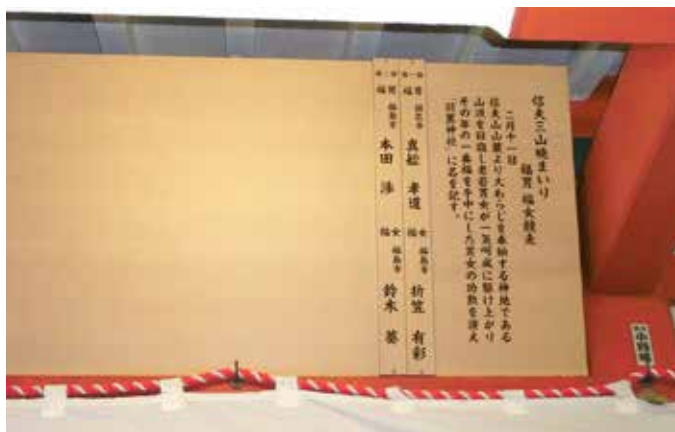 信夫三山暁まいり
福男 福女競走
二月十一日
信夫山山麓より大わらじを奉納する神地である
山頂を目指し老若男女が一気呵成に駆け上がり
その年の一番福を手中にした男女の功敷を湛え
「羽黒神社」に名を記す。
第一回
福男 福島市 真舩 孝道 福女 福島市 折笠 有彩
第二回
福男 福島市 本田 渉 福女 福島市 鈴木 葵